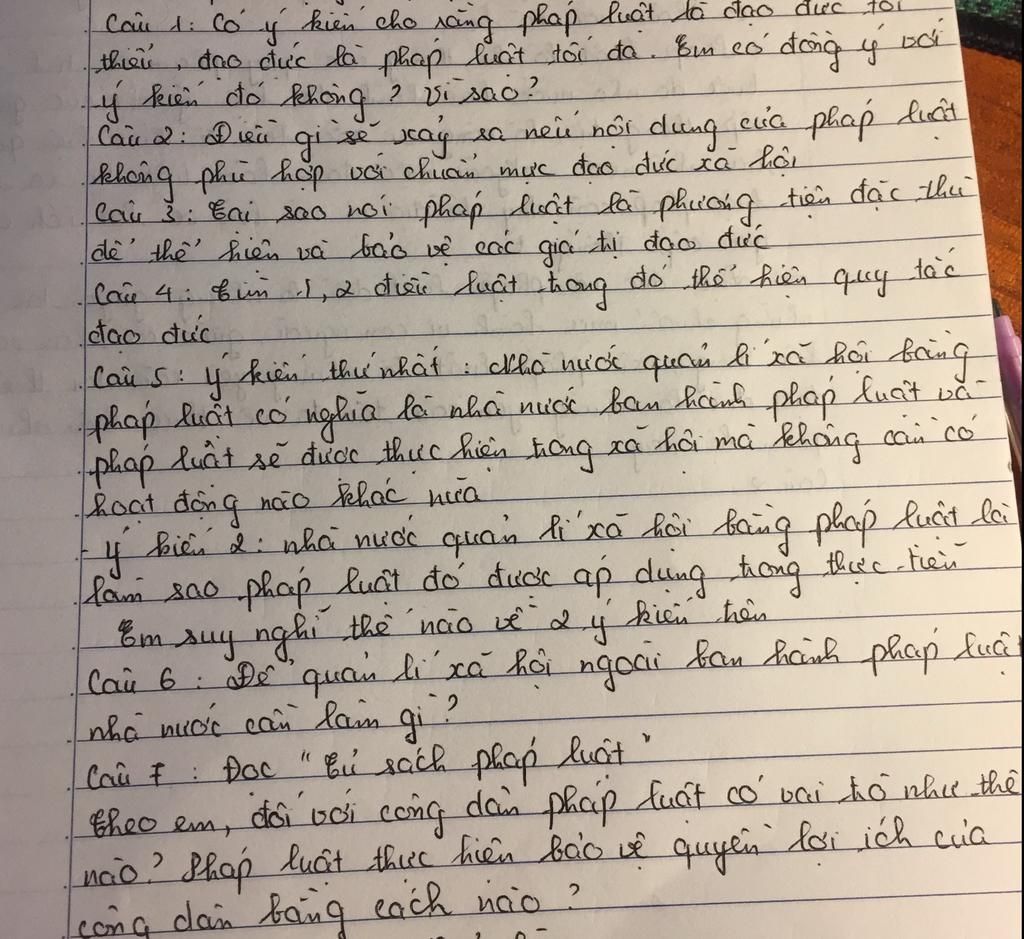 Câu 1: Có ý kiến cho rằng pháp luật là đạo đức tối
thiểu, đạo đức là pháp luật tối đa. Em có đồng ý với
ý kiến đó không? Vì sao?
Câu 2: Điều gì sẽ xảy ra nếu nội dung của pháp luật
không phù hợp với chuẩn mực đạo đức xã hội
Câu 3: Tại sao nói pháp luật là phương tiện đặc thù
để thể hiện và bảo vệ các giá trị đạo đức
Câu 4: Tìm 1, 2 điều luật trong đó thể hiện quy tắc
đạo đức
Câu 5: Ý kiến thứ nhất: Nhà nước quản lí xã hội bằng
pháp luật có nghĩa là nhà nước ban hành pháp luật và
pháp luật sẽ được thực hiện trong xã hội mà không cần có
hoạt động nào khác nữa
- Ý kiến 2: nhà nước quản lí xã hội bằng pháp luật là
làm sao pháp luật đó được áp dụng trong thực tiễn
Em suy nghĩ thế nào về 2 ý kiến trên
Câu 6: Để quản lí xã hội ngoài ban hành pháp luật
nhà nước cần làm gì?
Câu 7: Đọc "Tủ sách pháp luật"
Theo em, đối với công dân pháp luật có vai trò như thế
nào? Pháp luật thực hiện bảo vệ quyền lợi ích của
công dân bằng cách nào?